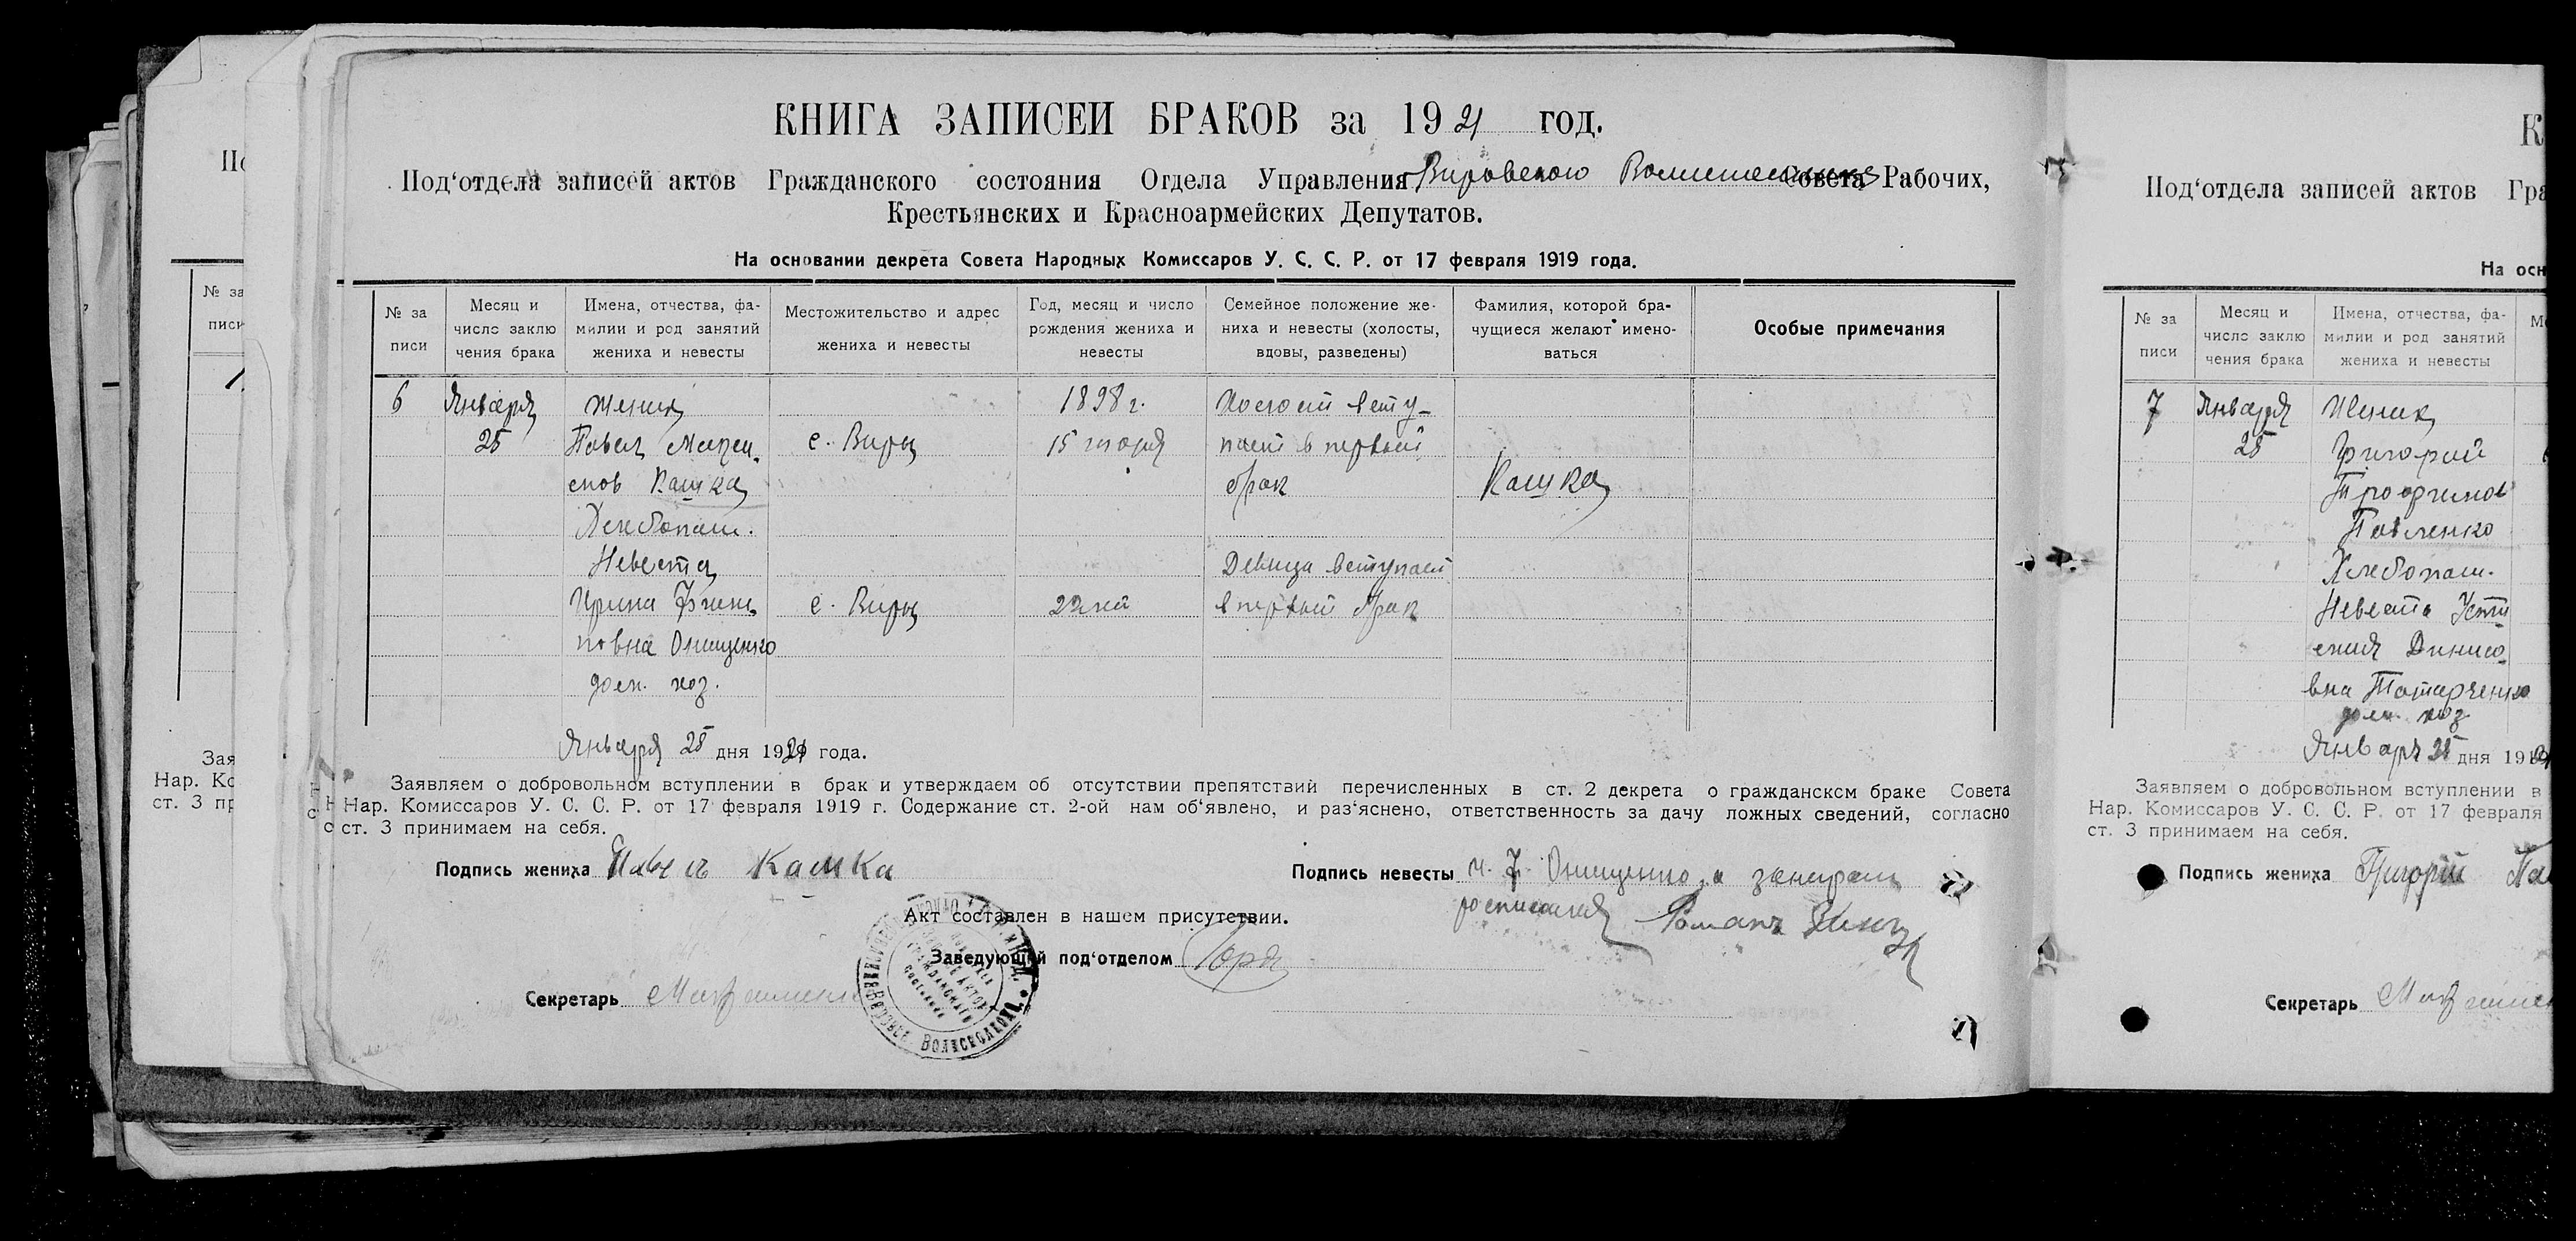 КНИГА ЗАПИСЕЙ БРАКОВ за 1921 год.
Под‘отдела записей актов Гражданского состояния Отдела Управления Вировского Совета Рабочих,
Крестьянских и Красноармейских Депутатов.
На основании декрета Совета Народных Комиссаров У. С. С. Р. от 17 февраля 1919 года.
№ за писи
Месяц и число заклю чения брака
Имена, отчества, фа- милии и род занятий жениха и невесты
Местожительство и адрес жениха и невесты
Год, месяц и число рождения жениха и невесты
Семейное положение же- ниха и невесты (холосты, вдовы, разведены)
Фамилия, которой бра- чущиеся желают имено- ваться
Особые примечания
6 Января Жених 1898 г. Холост всту-
25 Павел с. Виры 15 пает в первый
Кашка брак Кашка
Хлебопаш.
Невеста Девица вступает
Ирина с. Виры 22 лет в первый брак
повна Онищенко
дом. хоз.
Января 25 дня 1921 года.
Заявляем о добровольном вступлении в брак и утверждаем об отсутствии препятствий перечисленных в ст. 2 декрета о гражданском браке Совета
Нар. Комиссаров У. С. С. Р. от 17 февраля 1919 г. Содержание ст. 2-ой нам об‘явлено, и раз‘яснено, ответственность за дачу ложных сведений, согласно
ст. 3 принимаем на себя.
Подпись жениха Павелъ Кашка
Подпись невесты Онищенко, а
росписался Романъ
Акт составлен в нашем присутствии.
Заведующий под‘отделом
Секретарь
К
Под‘отдела записей актов Гра
На осн
№ за писи
Месяц и число заклю чения брака
Имена, отчества, фа- милии и род занятий жениха и невесты
7 Января Жених
25 Григорий
Трофимов
Павленко
Хлебопаш.
Невеста Усти
Татарченко
дом. хоз
Января 25 дня 19
Заявляем о добровольном вступлении в
Нар. Комиссаров У. С. С. Р. от 17 февраля
ст. 3 принимаем на себя.
Подпись жениха Григорій Па
Секретарь
№ за
писи
Зая
Нар. Ко
ст. 3 пр